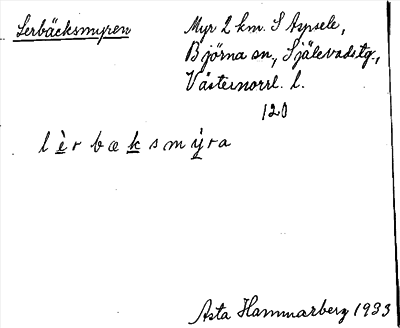 Lerbäcksmyren
Myr 2 km. S Aspsele,
Björna sn, Själevads tg.,
Västernorrl. l.
120
lèrbæksmy̆ra
Asta Hammarberg 1933